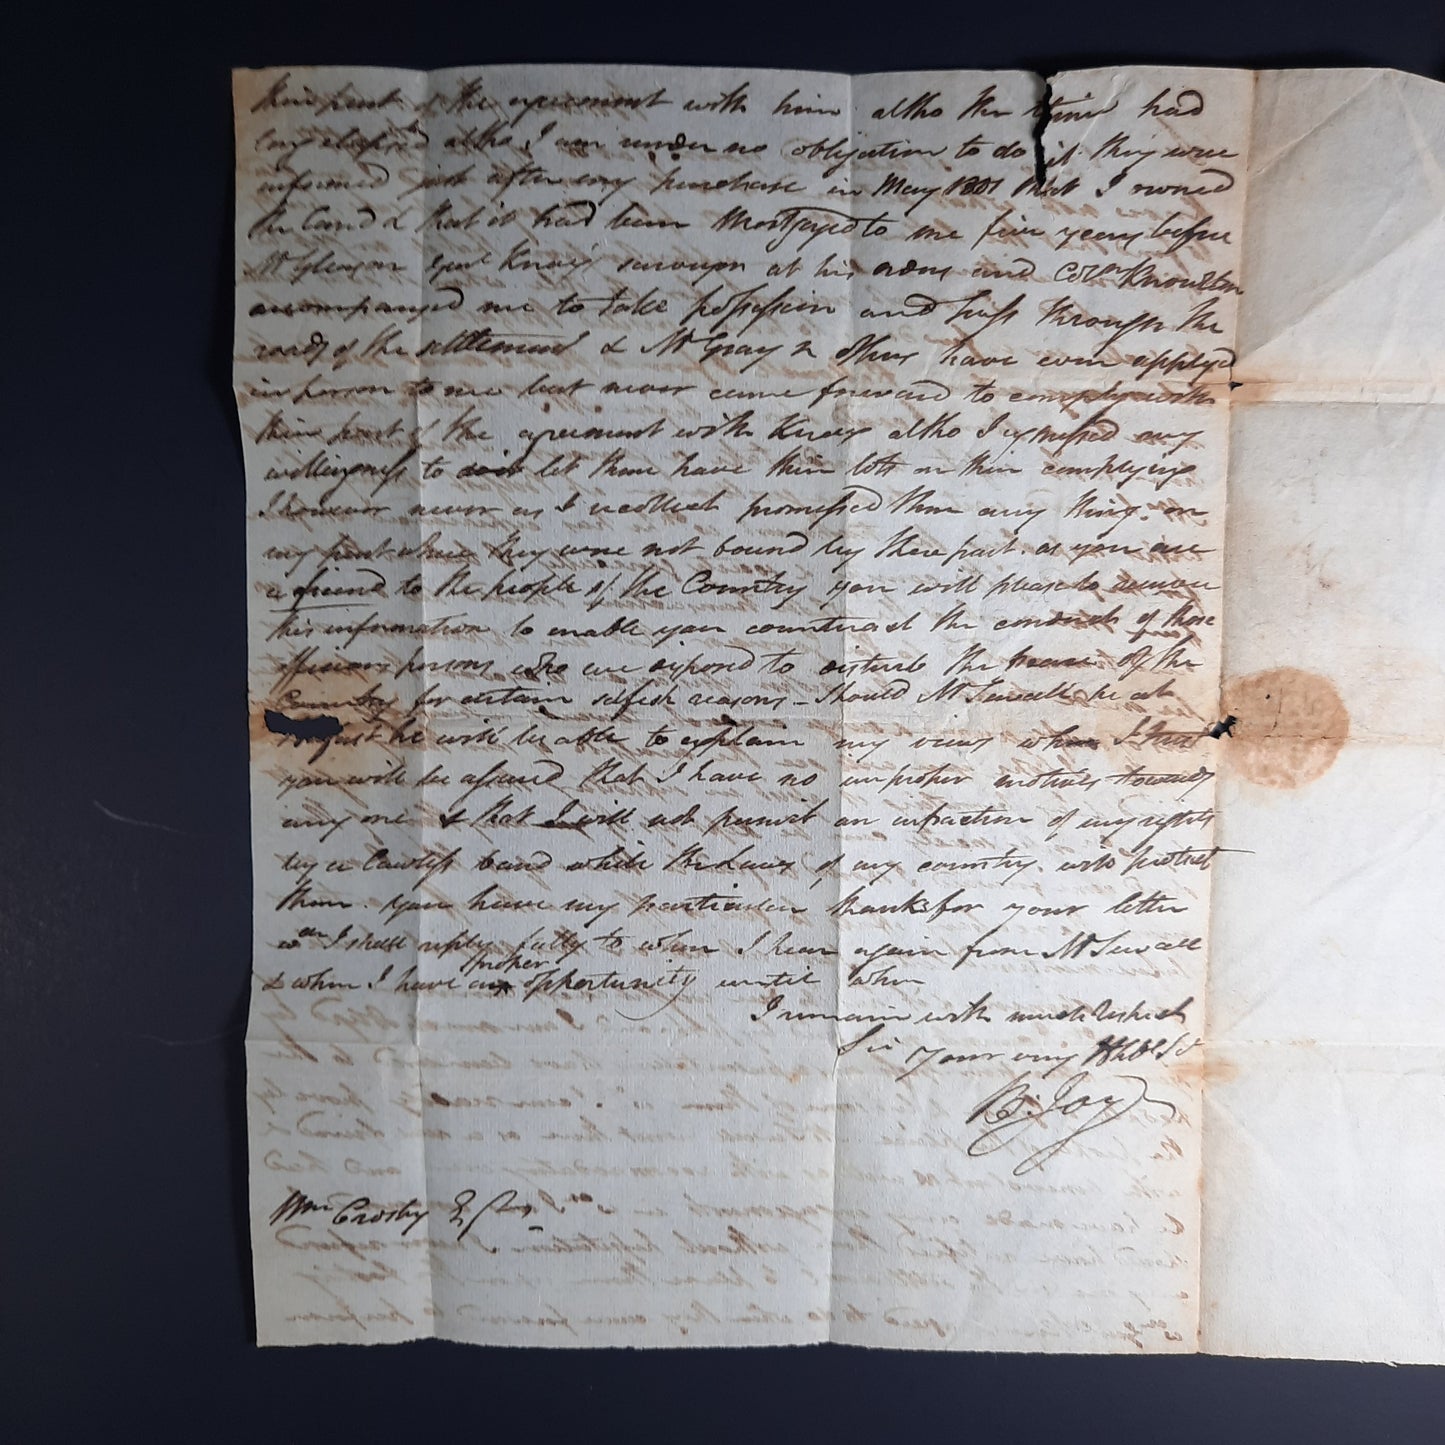 their part of the agreement with him altho the time had
long elapsed & altho I am under no obligation to do it. they were
informed just after my purchase in May 1801 that I owned
the Land & that it had been Mortgaged to me five years before
Mr Gleason Genl Knox's surveyor at his orders and Coln Knowlton
accompanyed me to take possession and pass through the
roads of the settlement & Mr Gray & others have even applyed
in person to me but never came forward to comply with
their part of the agreement with Knox altho I expressed my
willingness to let them have their lots on their complying
I however never as I recollect promissed them any thing on
my part where they were not bound by there part. as you are
a friend to the people of the Country you will please to receive
this information to enable you counteract the conduct of those
officious persons who are disposed to disturb the peace of the
Country for certain selfish reasons - Should Mr Sewall be at
Belfast he will be able to explain my views when I trust
you will be assured that I have no improper motives towards
any one & that I will not permit an infraction of my rights
by a Lawless band while the Laws of my country will protect
them. you have my particular thanks for your letter
wch I shall reply fully to when I hear again from Mr Sewall
& when I have a proper opportunity until when
I remain with much Respect
Sir your very Hble St
B. Joy
Wm Crosby Esqr